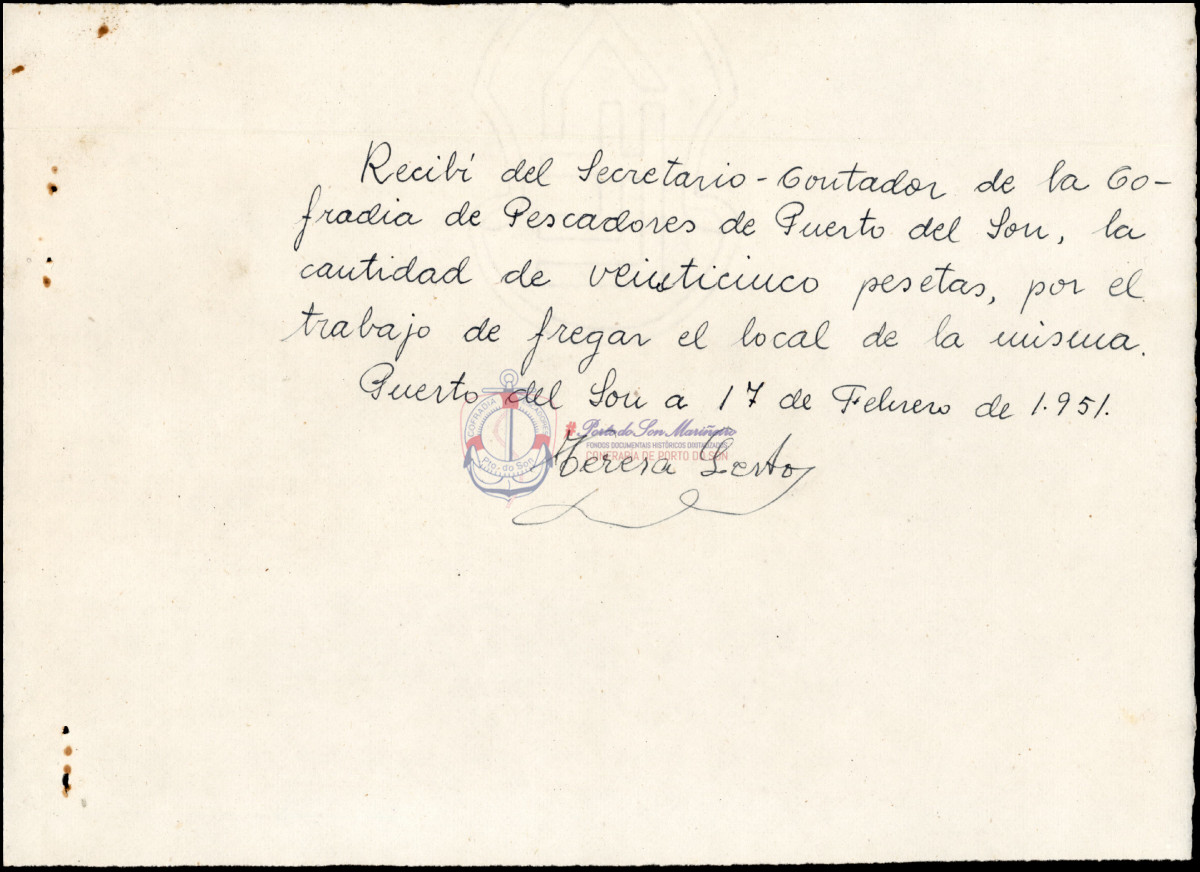 Recibí del Secretario-Contador de la Co-
fradia de Pescadores de Puerto del Son, la
cantidad de veinticinco pesetas, por el
trabajo de fregar el local de la misma.
Puerto del Son a 17 de Febrero de 1.951.
COFRADIA PESCADORES
Pto. do Son
# Porto do Son Mariñeiro
FONDOS DOCUMENTAIS HISTÓRICOS DIXITALIZADOS
CONFRARÍA DE PORTO DO SON
Teresa